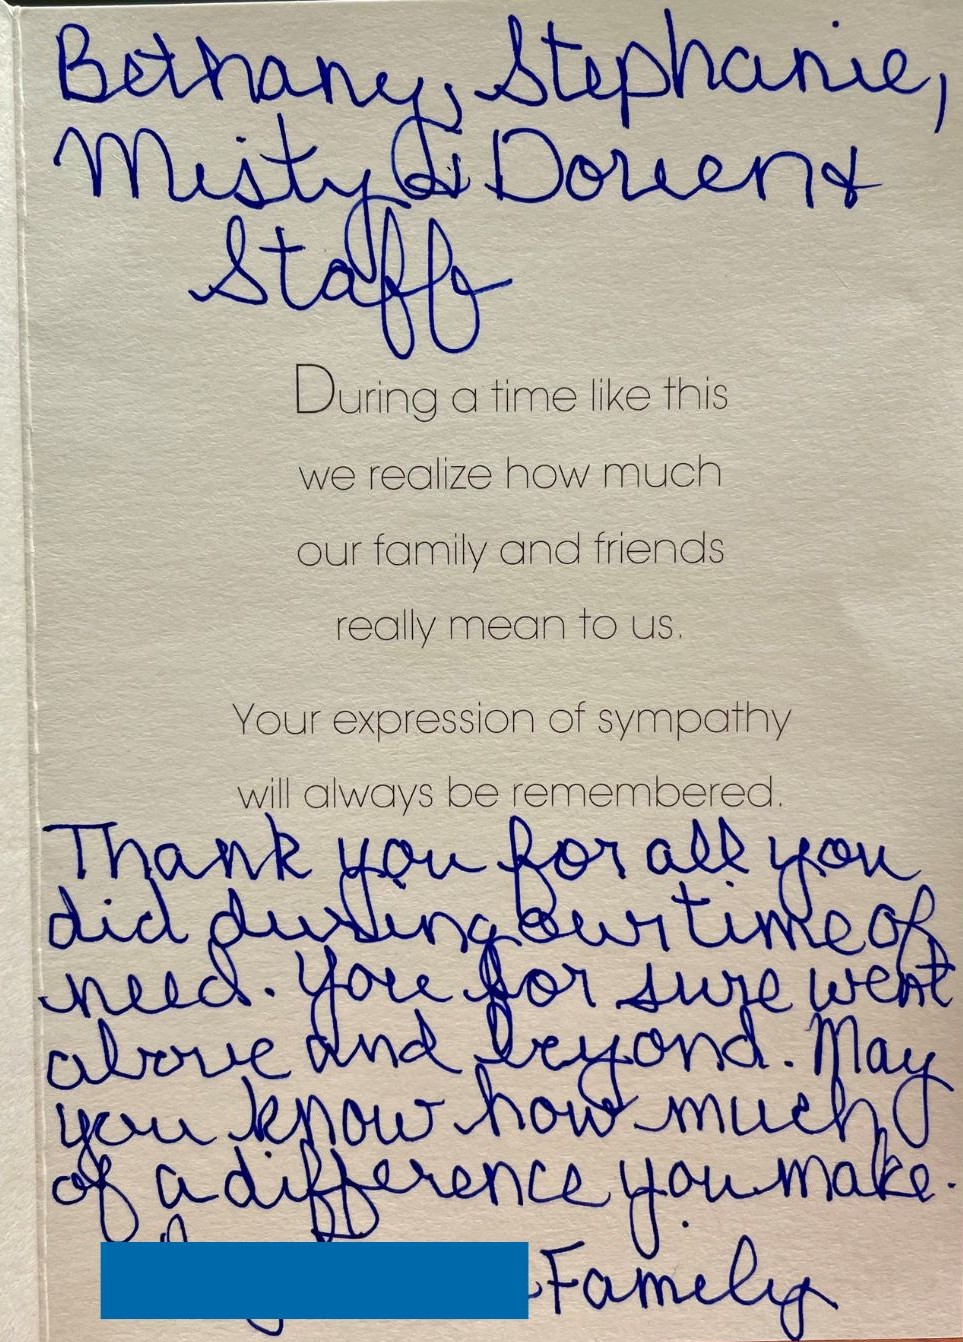 Bethany, Stephanie,
Misty, Di Doreen &
Staff
During a time like this
we realize how much
our family and friends
really mean to us.
Your expression of sympathy
will always be remembered.
Thank you for all you
did during our time of
need. You for sure went
above and beyond. May
you know how much
of a difference you make.
Family